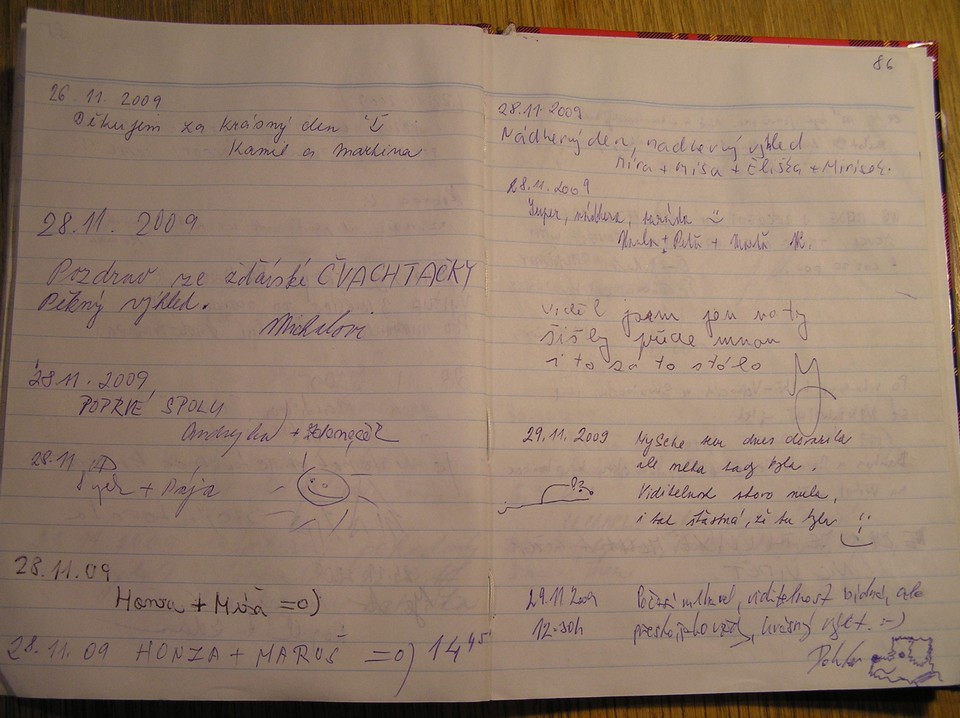 26. 11. 2009
Děkujem za krásný den
Kamil a Martina
28.11. 2009
Pozdrav ze žďárské ČVACHTAČKY
Pěkný výhled.
Michalovi
28 11. 2009
POPRVÉ SPOLU
Andrejka +
28.11.
+ Pája
28.11.09
Honza + Míša =o)
28.11.09 HONZA + MARUŠ =o) 14 45
86
28.11. 2009
Nádherný den, nadherný výhled
Míra + Míša + Eliška + Mirísek.
28.11.2009
Super, nádhera,
+ Petr + M.
viděl jsem jen
šišky přede mnou
i to za to stálo
29.11. 2009
Myška sem dnes dorazila
ale mlha tady byla.
Viditelnost skoro nula,
i tak šťastná, že tu byla
29.11 2009
12.30h
Počasí mlhavé, viditelnost bídná, ale
přesto, jako vždy, krásný výlet. =-)